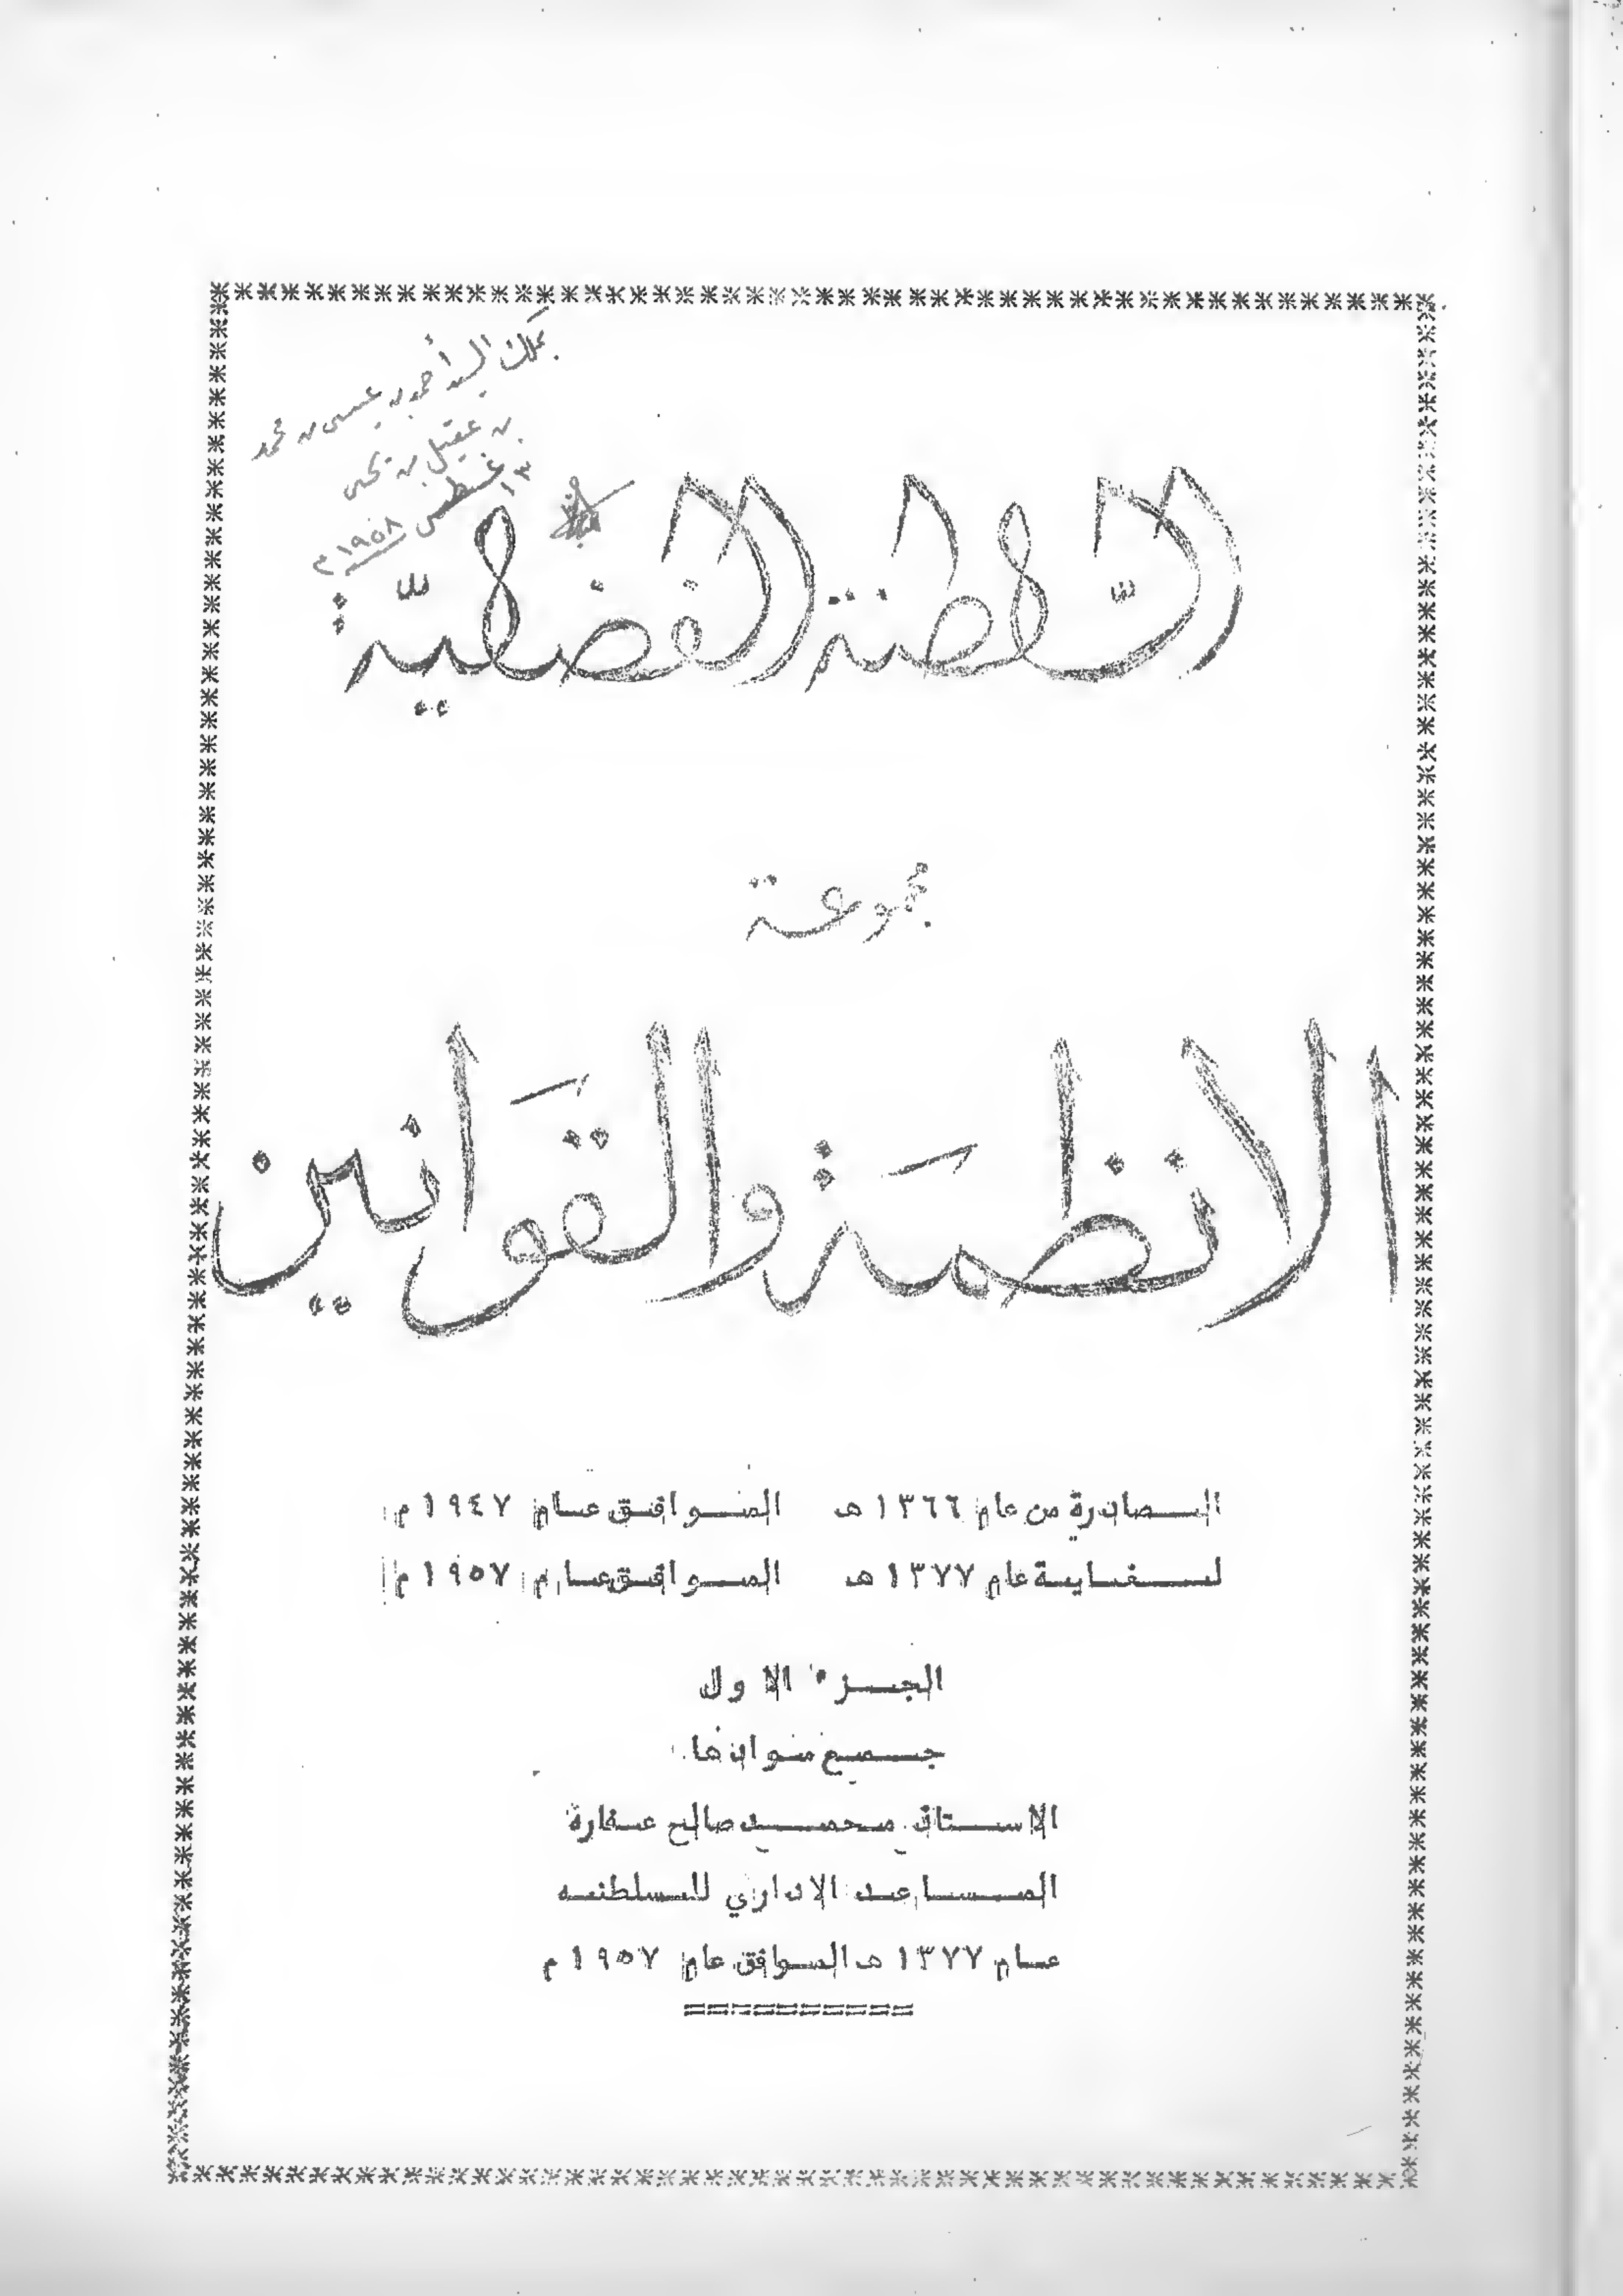 بملك السيد أحمد بن عيسى بن محمد
بن عقيل بن يحيى
١٣ غسطس ١٩٥٨م
السّلطنة الفضليّة
مجموعة
الانظمة والقوانين
الصادرة من عام ١٣٦٦ هـ الموافق عام ١٩٤٧ م
لغاية عام ١٣٧٧ هـ الموافق عام ١٩٥٧ م
الجزء الاول
جمع موادها
الاستاذ محمد صالح عفارة
المساعد الاداري للسلطنه
عام ١٣٧٧ هـ الموافق عام ١٩٥٧ م
==========